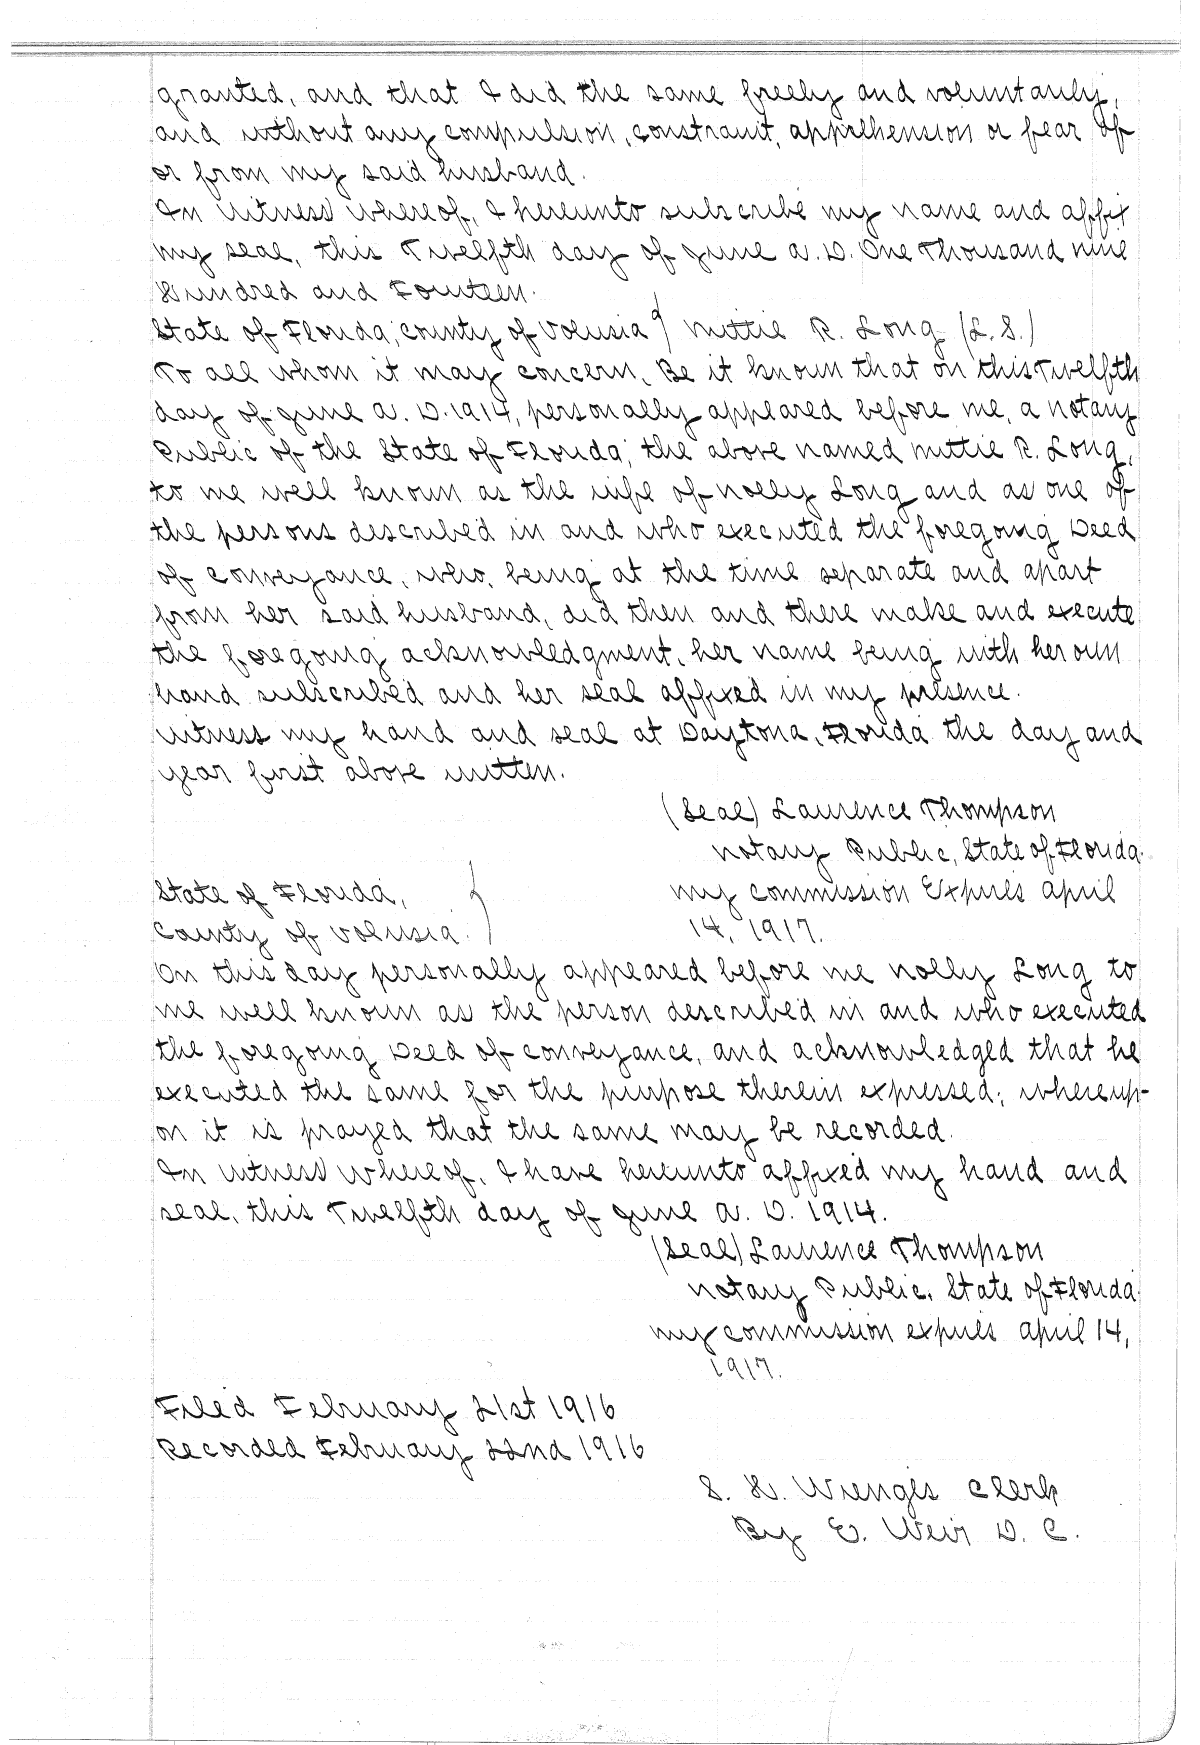 granted, and that I did the same freely and voluntarily,
and without any compulsion, constraint, apprehension or fear of
or from my said husband.
In witness whereof, I hereunto subscribe my name and affix
my seal, this Twelfth day of June A. D. One Thousand nine
Hundred and Fourteen.
State of Florida, County of Volusia } Mittie R. Long (L. S.)
To all whom it may concern, Be it known that on this Twelfth
day of June A. D. 1914, personally appeared before me, a notary
Public of the State of Florida, the above named Mittie R. Long,
to me well known as the wife of Nolly Long and as one of
the persons described in and who executed the foregoing Deed
of Conveyance, who, being at the time separate and apart
from her said husband, did then and there make and execute
the foregoing acknowledgment, her name being with her own
hand subscribed and her seal affixed in my presence.
Witness my hand and seal at Daytona, Florida the day and
year first above written.
(Seal) Laurence Thompson
Notary Public, State of Florida.
State of Florida, } My commission Expires April
County of Volusia. 14, 1917.
On this day personally appeared before me Nolly Long to
me well known as the person described in and who executed
the foregoing Deed of Conveyance, and acknowledged that he
executed the same for the purpose therein expressed; whereup-
on it is prayed that the same may be recorded.
In Witness Whereof, I have hereunto affixed my hand and
seal, this Twelfth day of June A. D. 1914.
(Seal) Laurence Thompson
Notary Public, State of Florida.
My commission expires April 14,
1917.
Filed February 21st 1916
Recorded February 22nd 1916
S. D. Wienges Clerk
By E. Weir D. C.